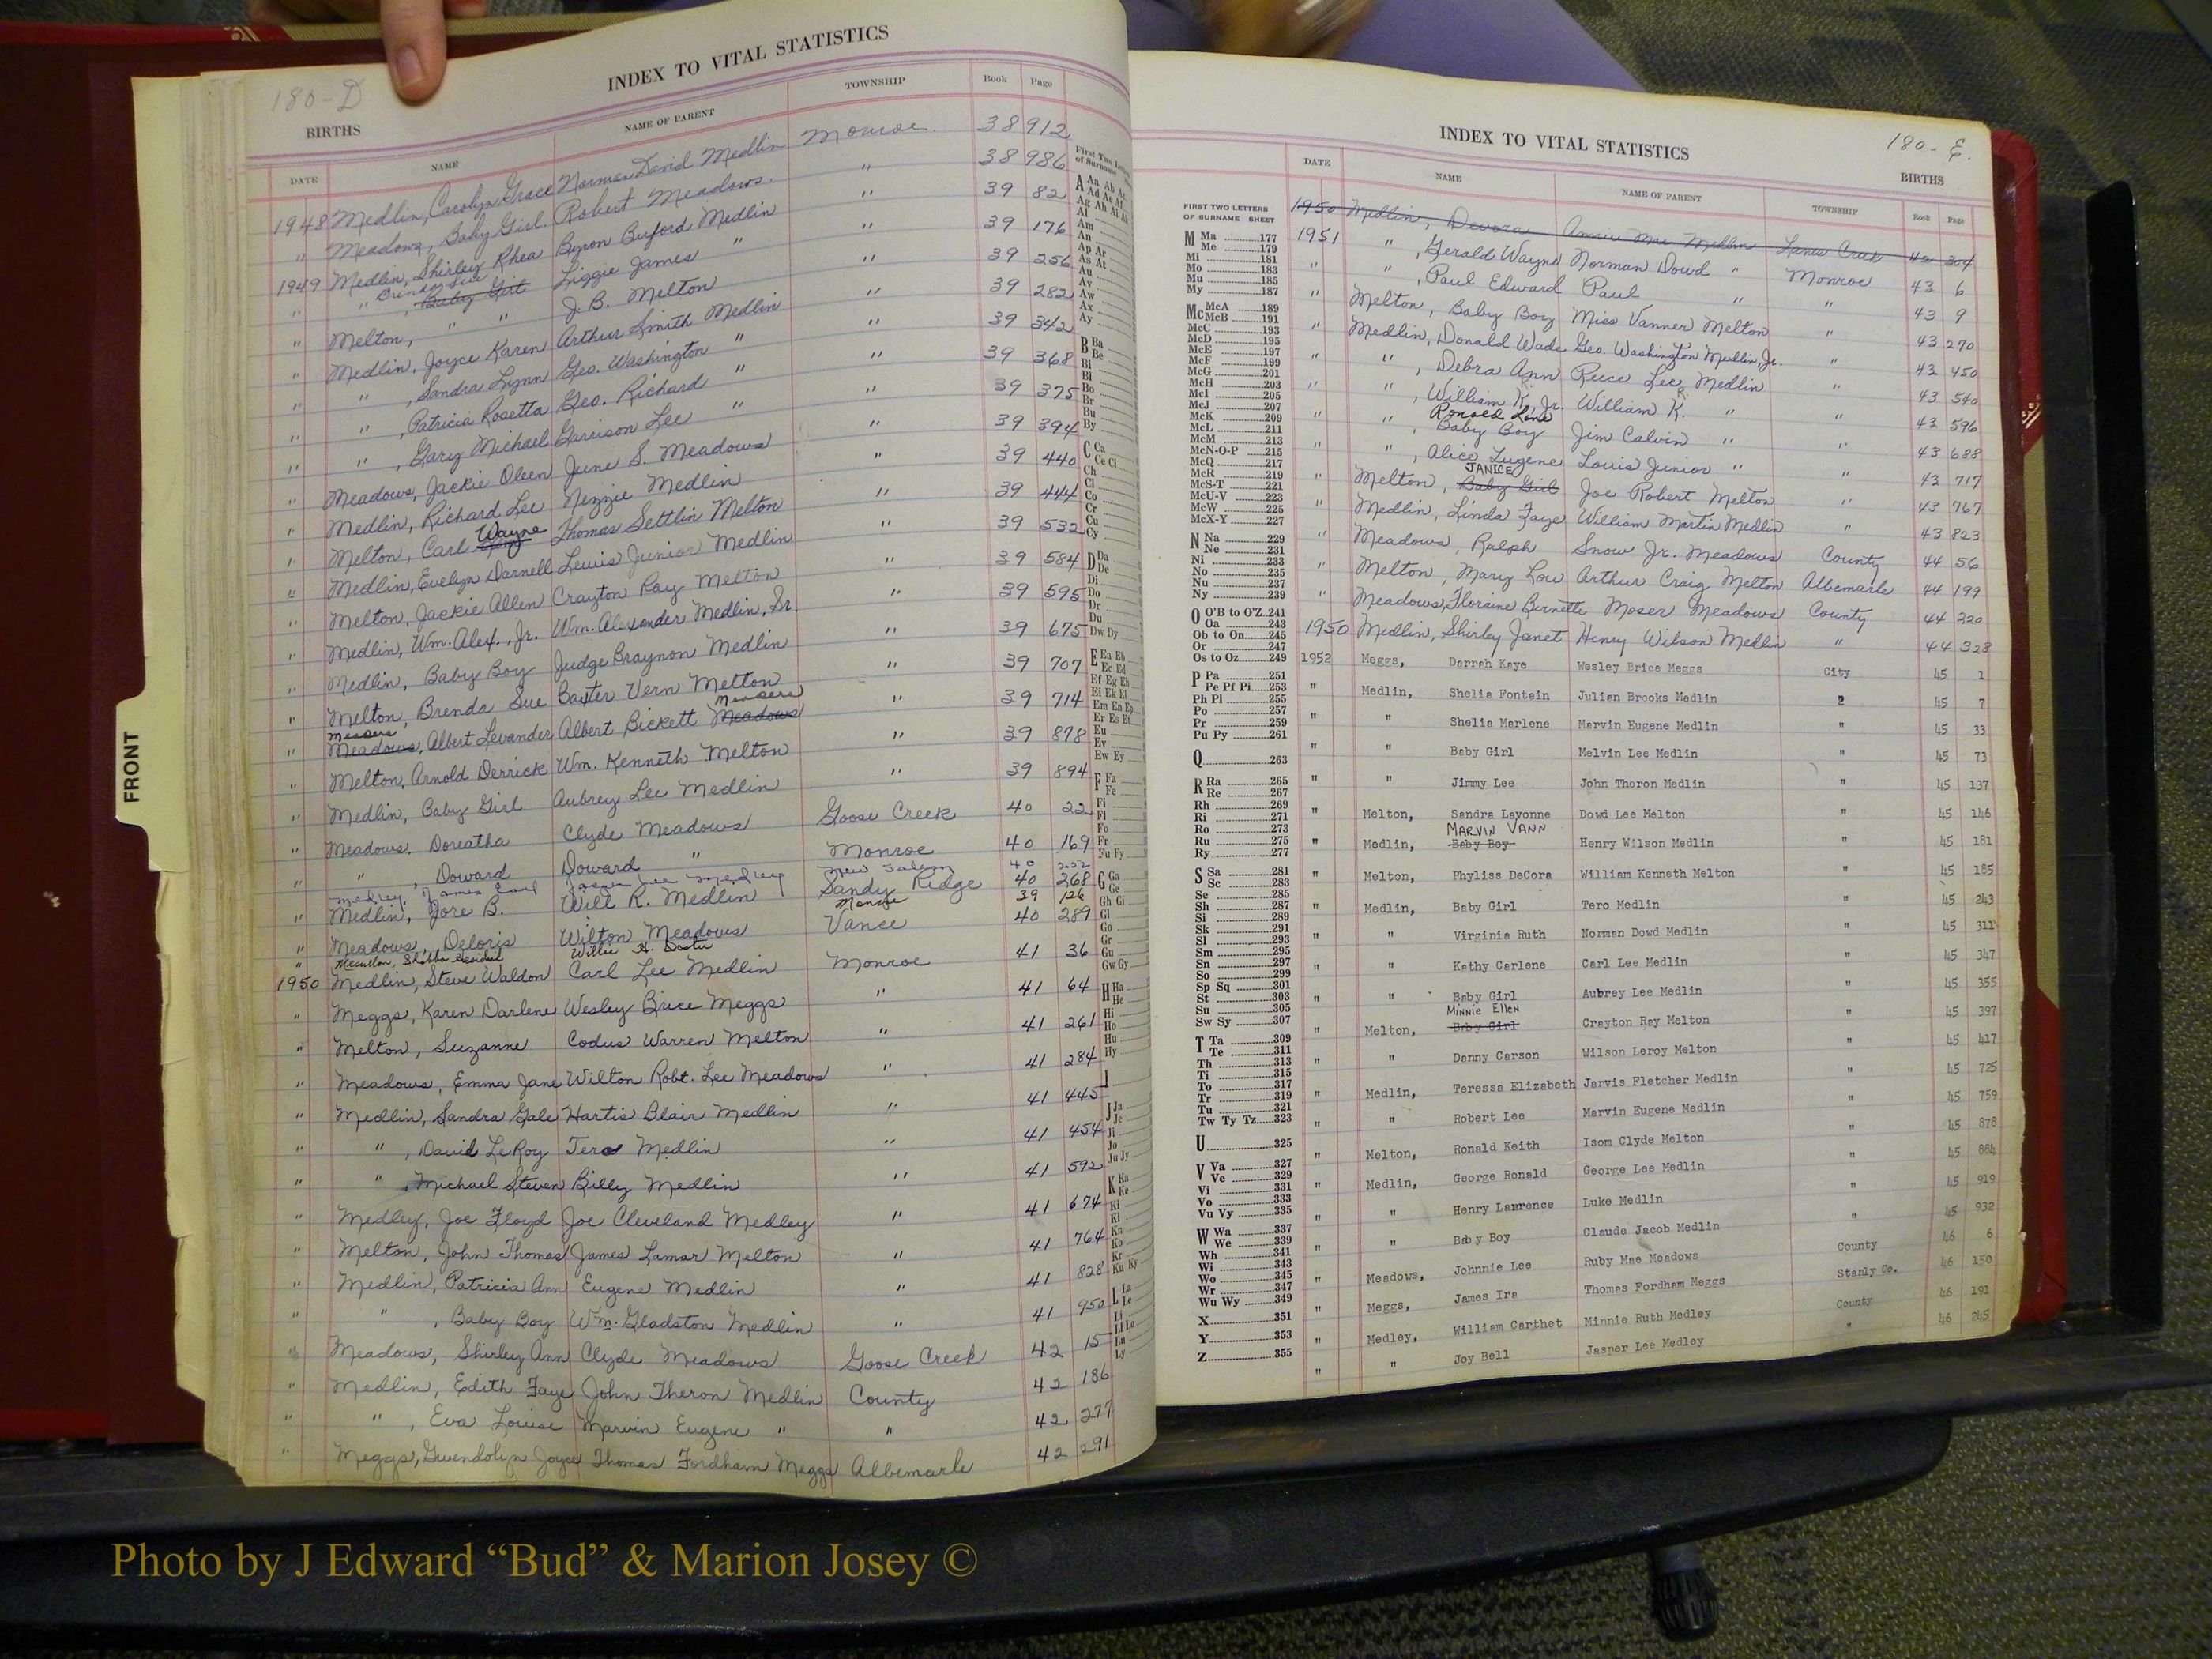 180-D
INDEX TO VITAL STATISTICS
BIRTHS
DATE NAME NAME OF PARENT TOWNSHIP Book Page
1948 Medlin, Carolyn Grace Norman David Medlin Monroe. 38 912
" Meadows, Baby Girl. Robert Meadows. " 38 986
1949 Medlin, Shirley Rhea Byron Buford Medlin " 39 82
" " Brenda Sue
, Baby Girl Lizzie James " " 39 176
" Melton, " " J. B. Melton " 39 256
" Medlin, Joyce Karen Arthur Smith Medlin " 39 282
" " , Sandra Lynn Geo. Washington " " 39 342
" " , Patricia Rosetta Geo. Richard " " 39 368
" " , Gary Michael Garrison Lee " " 39 375
" Meadows, Jackie Oleen June S. Meadows " 39 394
" Medlin, Richard Lee Nezzie Medlin " 39 440
" Melton, Carl Wayne Thomas Settlin Melton " 39 444
" Medlin, Evelyn Darnell Lewis Junior Medlin " 39 532
" Melton, Jackie Allen Crayton Ray Melton " 39 584
" Medlin, Wm. Alex., Jr. Wm. Alexander Medlin, Sr. " 39 595
" Medlin, Baby Boy Judge Braynon Medlin " 39 675
" Melton, Brenda Sue Baxter Vern Melton " 39 707
Measers Measers
" Meadows, Albert Levander Albert Bickett Meadows " 39 714
" Melton, Arnold Derrick Wm. Kenneth Melton " 39 878
" Medlin, Baby Girl Aubrey Lee Medlin " 39 894
" Meadows. Doreatha Clyde Meadows Goose Creek 40 22
" " , Doward Doward " Monroe 40 169
Medley, James Earl Jasper Lee Medley New Salem 40 222
" Medlin, Jore B. Wilt R. Medlin Sandy Ridge 40 268
Monroe 39 126
" Meadows, Deloris Wilton Meadows Vance 40 289
" Willie H.
1950 Medlin, Steve Waldon Carl Lee Medlin Monroe 41 36
" Meggs, Karen Darlene Wesley Brice Meggs " 41 64
" Melton, Suzanne Codus Warren Melton " 41 261
" Meadows, Emma Jane Wilton Robt. Lee Meadows " 41 284
" Medlin, Sandra Gale Hartis Blair Medlin " 41 445
" " , David LeRoy Tero Medlin " 41 454
" " , Michael Steven Billy Medlin " 41 592
" Medley, Joe Floyd Joe Cleveland Medley " 41 674
" Melton, John Thomas James Lamar Melton " 41 764
" Medlin, Patricia Ann Eugene Medlin " 41 828
" " , Baby Boy Wm. Gladston Medlin " 41 950
" Meadows, Shirley Ann Clyde Meadows Goose Creek 42 15
" Medlin, Edith Faye John Theron Medlin County 42 186
" " , Eva Louise Marvin Eugene " " 42 277
" Meggs, Gwendolyn Joyce Thomas Fordham Meggs Albemarle 42 291
FRONT
First Two
of Surname
A Aa Ab Ac
Ad Ae Af
Ag Ah Ai Ak
Al
Am
An
Ap Ar
As At
Au
Av
Aw
Ax
Ay
B Ba
Be
Bi
Bl
Bo
Br
Bu
By
C Ca
Ce Ci
Ch
Cl
Co
Cr
Cu
Cy
D Da
De
Di
Do
Dr
Du
Dw Dy
E Ea Eb
Ec Ed
Ef Eg Eh
Ei Ek El
Em En Ep
Er Es Et
Eu
Ev
Ew Ey
F Fa
Fe
Fi
Fl
Fo
Fr
Fu Fy
G Ga
Ge
Gh Gi
Gl
Go
Gr
Gu
Gw Gy
H Ha
He
Hi
Ho
Hu
Hy
I
J Ja
Je
Ji
Jo
Ju Jy
K Ka
Ke
Ki
Kl
Kn
Ko
Kr
Ku Ky
L La
Le
Li
Ll Lo
Lu
Ly
INDEX TO VITAL STATISTICS
180-E.
BIRTHS
DATE NAME NAME OF PARENT TOWNSHIP Book Page
1950 Medlin, Devora Annie Mae Medlin Lanes Creek 42 304
1951 " , Gerald Wayne Norman Dowd " Monroe 43 6
" " , Paul Edward Paul " " 43 9
" Melton, Baby Boy Miss Vanner Melton " 43 270
" Medlin, Donald Wade Geo. Washington Medlin, Jr. " 43 450
" " , Debra Ann Reece Lee Medlin " 43 540
" " , William K., Jr. William K. " " 43 596
Ronald Lane
" " , Baby Boy Jim Calvin " " 43 688
" " , Alice Lugene Louis Junior " " 43 717
JANICE
" Melton, Baby Girl Joe Robert Melton " 43 767
" Medlin, Linda Faye William Martin Medlin " 43 823
" Meadows, Ralph Snow Jr. Meadows County 44 56
" Melton, Mary Lou Arthur Craig Melton Albemarle 44 199
Meadows, Floraine Bernette Moser Meadows County 44 320
1950 Medlin, Shirley Janet Henry Wilson Medlin " 44 328
1952 Meggs, Darrah Kaye Wesley Brice Meggs City 45 1
" Medlin, Shelia Fontain Julian Brooks Medlin 2 45 7
" " Shelia Marlene Marvin Eugene Medlin " 45 33
" " Baby Girl Melvin Lee Medlin " 45 73
" " Jimmy Lee John Theron Medlin " 45 137
" Melton, Sandra Layonne Dowd Lee Melton " 45 146
MARVIN VANN
" Medlin, Baby Boy Henry Wilson Medlin " 45 181
" Melton, Phyliss DeCora William Kenneth Melton " 45 185
" Medlin, Baby Girl Tero Medlin " 45 243
" " Virginia Ruth Norman Dowd Medlin " 45 311
" " Kathy Carlene Carl Lee Medlin " 45 347
" " Baby Girl Aubrey Lee Medlin " 45 355
MINNIE ELLEN
" Melton, Baby Girl Crayton Ray Melton " 45 397
" " Danny Carson Wilson Leroy Melton " 45 417
" Medlin, Teressa Elizabeth Jarvis Fletcher Medlin " 45 725
" " Robert Lee Marvin Eugene Medlin " 45 759
" Melton, Ronald Keith Isom Clyde Melton " 45 878
" Medlin, George Ronald George Lee Medlin " 45 884
" " Henry Lawrence Luke Medlin " 45 919
" " Baby Boy Claude Jacob Medlin " 45 932
" Meadows, Johnnie Lee Ruby Mae Meadows County 46 6
" Meggs, James Ira Thomas Fordham Meggs Stanly Co. 46 150
" Medley, William Carthet Minnie Ruth Medley County 46 191
" " Joy Bell Jasper Lee Medley " 46 245
FIRST TWO LETTERS
OF SURNAME SHEET
M Ma 177
Me 179
Mi 181
Mo 183
Mu 185
My 187
Mc McA 189
McB 191
McC 193
McD 195
McE 197
McF 199
McG 201
McH 203
McI 205
McJ 207
McK 209
McL 211
McM 213
McN-O-P 215
McQ 217
McR 219
McS-T 221
McU-V 223
McW 225
McX-Y 227
N Na 229
Ne 231
Ni 233
No 235
Nu 237
Ny 239
O O'B to O'Z 241
Oa 243
Ob to On 245
Or 247
Os to Oz 249
P Pa 251
Pe Pf Pi 253
Ph Pl 255
Po 257
Pr 259
Pu Py 261
Q 263
R Ra 265
Re 267
Rh 269
Ri 271
Ro 273
Ru 275
Ry 277
S Sa 281
Sc 283
Se 285
Sh 287
Si 289
Sk 291
Sl 293
Sm 295
Sn 297
So 299
Sp Sq 301
St 303
Su 305
Sw Sy 307
T Ta 309
Te 311
Th 313
Ti 315
To 317
Tr 319
Tu 321
Tw Ty Tz 323
U 325
V Va 327
Ve 329
Vi 331
Vo 333
Vu Vy 335
W Wa 337
We 339
Wh 341
Wi 343
Wo 345
Wr 347
Wu Wy 349
X 351
Y 353
Z 355
Photo by J Edward “Bud” & Marion Josey ©